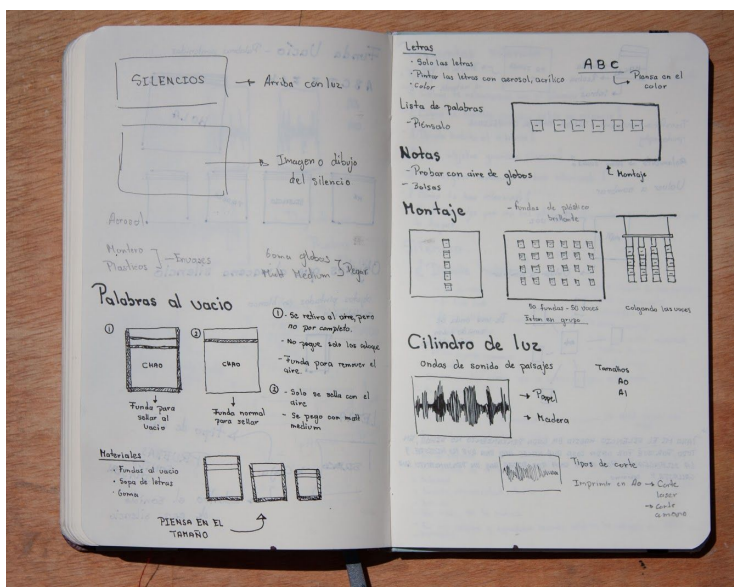 SILENCIOS
→ Arriba con luz
→ Imagen o dibujo
del silencio
Aerosol
Mantero
Plasticos
Envases
Goma globos
Matt Medium
Pegue
Palabras al vacio
①
CHAO
Funda para
sellar al
vacio
②
CHAO
Funda normal
para sellar
① - Se retira al aire, pero
no por completo.
- No pegue solo las coloque
- Funda para remover el
aire.
② - Solo se sella con el
aire
- Se pega con matt
medium
Materiales
· Fundas al vacio
· Sopa de letras
· Goma
PIENSA EN EL
TAMAÑO
Letras
- Solo las letras
- Pintar las letras con aerosol, acrílico
- Color
ABC
Piensa en el
color
Lista de palabras
- Piénsalo
Montaje
Notas
- Probar con aire de globos
- Bolsas
Montaje
- fundas de plástico
brillante
50 fundas - 50 voces
Estan en grupo
colgando las voces
Cilindro de luz
Ondas de sonido de paisajes
→ Papel
→ Madera
Tamaños
A0
A1
Tipos de corte
Imprimir en A0 → Corte
laser
→ Corte
a mano